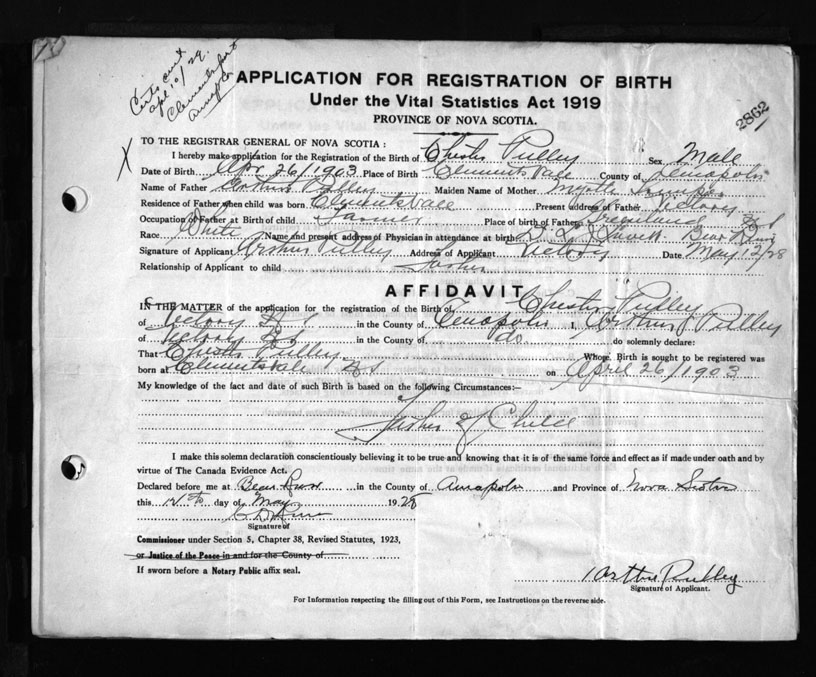 Apl 10/29.
Clementsport
APPLICATION FOR REGISTRATION OF BIRTH
Under the Vital Statistics Act 1919
PROVINCE OF NOVA SCOTIA.
2862
TO THE REGISTRAR GENERAL OF NOVA SCOTIA :
X
I hereby make application for the Registration of the Birth of Chester Pulley Sex Male
Date of Birth Apr 26/1903 Place of Birth Clements Vale County of Annapolis
Name of Father Arthur Pulley Maiden Name of Mother Myrtle
Residence of Father when child was born Clementsvale Present address of Father Victory
Occupation of Father at Birth of child Farmer Place of birth of Father Greenland N S
Race White Name and present address of Physician in attendance at birth Bear River
Signature of Applicant Arthur Pulley Address of Applicant Victory Date May 12/28
Relationship of Applicant to child Father
AFFIDAVIT
IN THE MATTER of the application for the registration of the Birth of Chester Pulley
of Victory N S in the County of Annapolis I, Arthur Pulley
of Victory N S in the County of do do solemnly declare:
That Chester Pulley Whose Birth is sought to be registered was
born at Clementsvale N S on April 26/1903
My knowledge of the fact and date of such Birth is based on the following Circumstances:—
Father of Child
I make this solemn declaration conscientiously believing it to be true and knowing that it is of the same force and effect as if made under oath and by
virtue of The Canada Evidence Act.
Declared before me at Bear River in the County of Annapolis and Province of Nova Scotia
this 12th day of May 1928
Signature of
Commissioner under Section 5, Chapter 38, Revised Statutes, 1923,
or Justice of the Peace in and for the County of
If sworn before a Notary Public affix seal.
Arthur Pulley
Signature of Applicant.
For Information respecting the filling out of this Form, see Instructions on the reverse side.